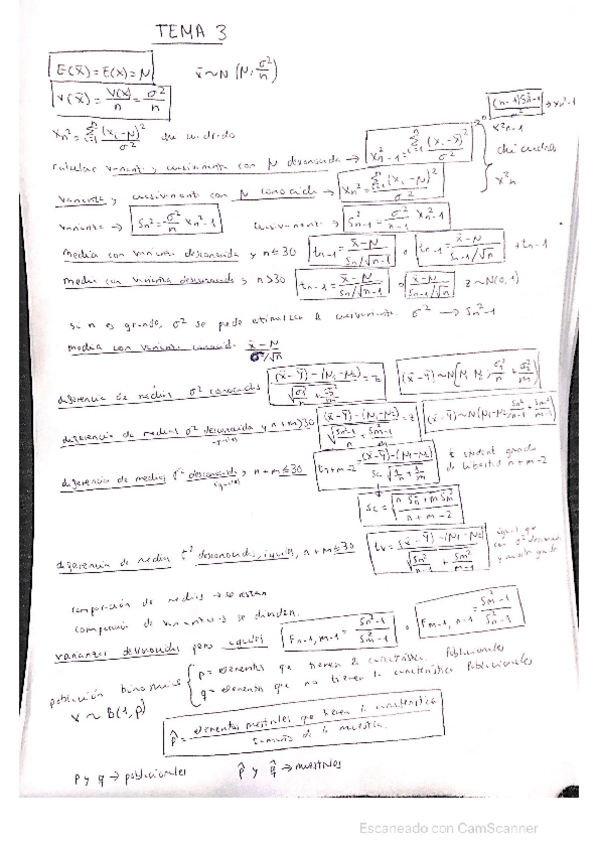 TEMA 3
E(x̄) = E(x) = N   x̄ ~ N (N, σ²/n)
V(x̄) = V(x)/n = σ²/n
Xn² = Σ (xi - N)²/σ² chi cuadrado
calcular varianza y cuasivarianza con N desconocida → X²n-1 = Σ (xi - x̄)²/σ²
(n-1)S²n-1/σ² → X²n-1
chi cuadrado
X²n
varianza y cuasivarianza con N conocida → Xn² = Σ (xi - N)²/σ²
varianza → Sn² = σ²/n X²n-1   cuasivarianza → S²n-1 = σ²/n-1 X²n-1
media con varianza desconocida y n≤30 tn-1 = x̄ - N / Sn/√n-1 o tn-1 = x̄ - N / Sn-1/√n   tn-1
media con varianza desconocida y n>30 tn-1 = x̄ - N / Sn/√n-1 o x̄ - N / Sn-1/√n   z ~ N(0, 1)
si n es grande, σ² se puede σ² → S²n-1
media con varianza conocida x̄ - N / σ²/√n
diferencia de medias σ² conocidas (x̄ - ȳ) - (N1 - N2) / √σ1²/n + σ2²/m = z   (x̄ - ȳ) ~ N(N1 - N2, σ1²/n + σ2²/m)
diferencia de medias σ² desconocida y n+m>30 (x̄ - ȳ) - (N1 - N2) / √Sn²/n-1 + Sm²/m-1 = z   (x̄ - ȳ) ~ N(N1 - N2, Sn²/n-1 + Sm²/m-1)
diferencia de medias σ² desconocida, n+m≤30 tn+m-2 = (x̄ - ȳ) - (N1 - N2) / Sc √1/n + 1/m
t student grado de libertad n+m-2
Sc = √n Sn² + m Sm² / n + m - 2
diferencia de medias σ² desconocida, iguales, n+m≤30 tv = (x̄ - ȳ) - (N1 - N2) / √Sn²/n-1 + Sm²/m-1
igual que con σ² desconocida
comparación de medias → se restan
comparación de varianzas se dividen.
varianzas desconocidas pero iguales Fn-1, m-1 = S²n-1 / S²m-1 o Fm-1, n-1 = S²m-1 / S²n-1
población binomial
p = elementos que tienen la característica poblacionales
q = elementos que no tienen la característica poblacionales
x ~ B(1, p)
p̂ = elementos muestrales que tienen la característica / tamaño de la muestra
p y q → poblacionales   p̂ y q̂ → muestrales
Escaneado con CamScanner